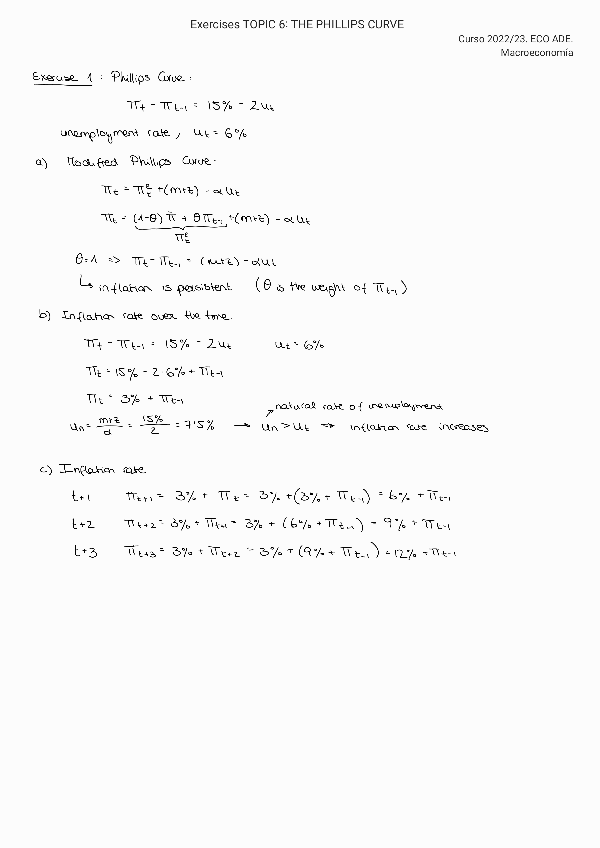 Exercises TOPIC 6: THE PHILLIPS CURVE
Curso 2022/23. ECO ADE.
Macroeconomía
Exercise 1: Phillips Curve:
πt - πt-1 = 15% - 2ut
unemployment rate, ut = 6%
a) Modified Phillips Curve:
πt = πt^e + (m+z) - αut
πt = (1-θ) π̄ + θπt-1 + (m+z) - αut
πt^e
θ=1 => πt - πt-1 = (m+z) - αut
↳ inflation is persistent (θ is the weight of πt-1)
b) Inflation rate over the time.
πt - πt-1 = 15% - 2ut ut = 6%
πt = 15% - 2·6% + πt-1
πt = 3% + πt-1
natural rate of unemployment
un = m+z/α = 15%/2 = 7'5% → un > ut => inflation rate increases
c) Inflation rate.
t+1 πt+1 = 3% + πt = 3% + (3% + πt-1) = 6% + πt-1
t+2 πt+2 = 3% + πt+1 = 3% + (6% + πt-1) = 9% + πt-1
t+3 πt+3 = 3% + πt+2 = 3% + (9% + πt-1) = 12% + πt-1